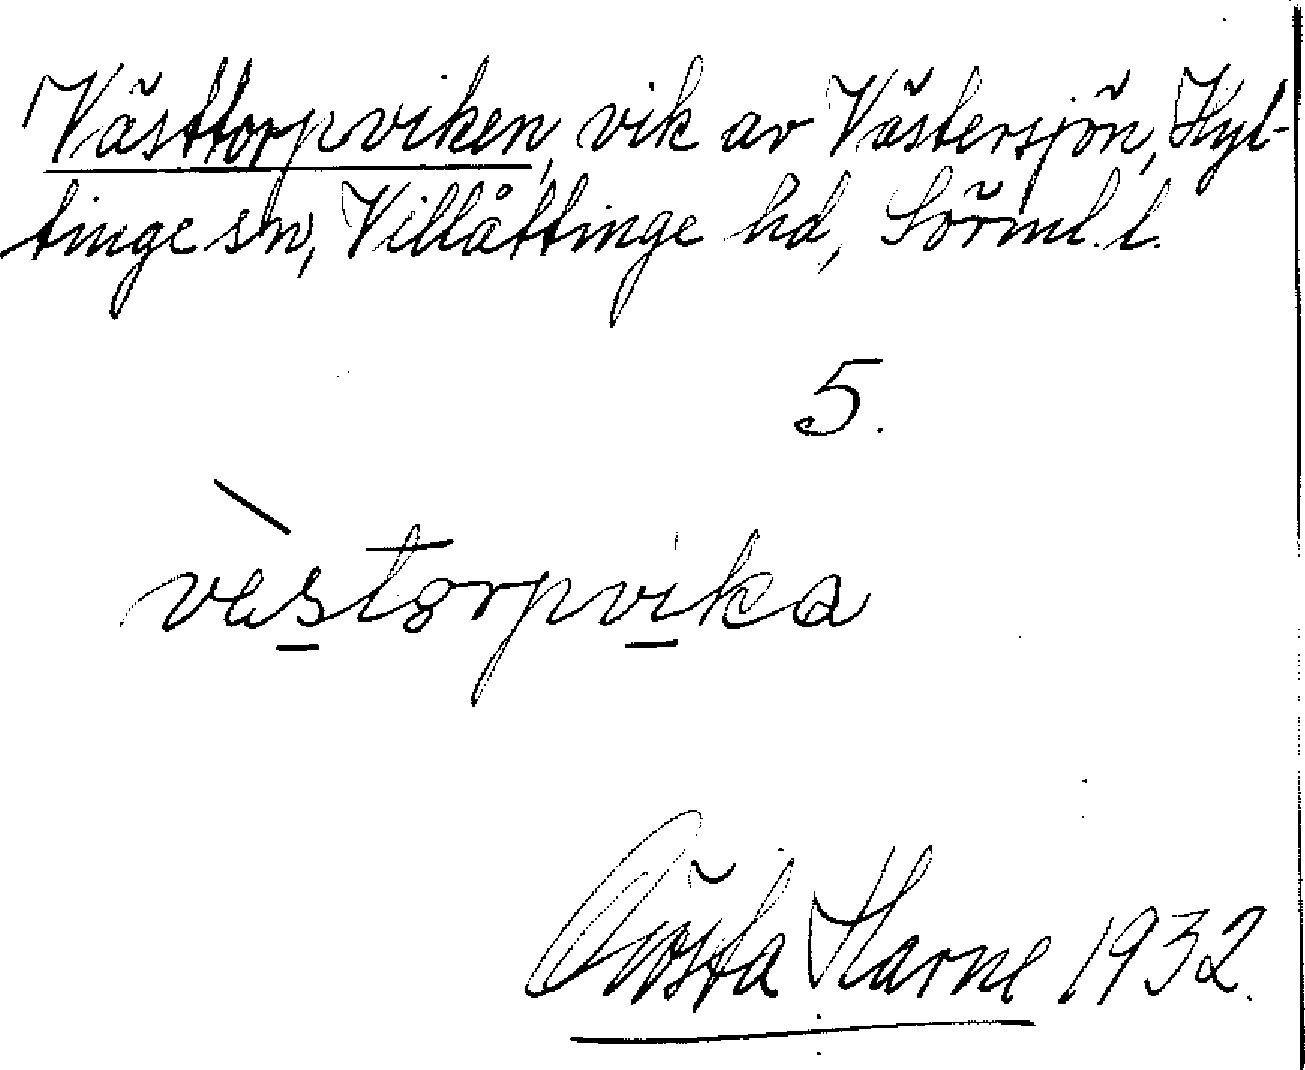 Västtorpviken, vik av Västersjön, Hyl-
tinge sn, Villåttinge hd, Sörml. l.
5.
vestorpvika
Gösta Harne 1932.